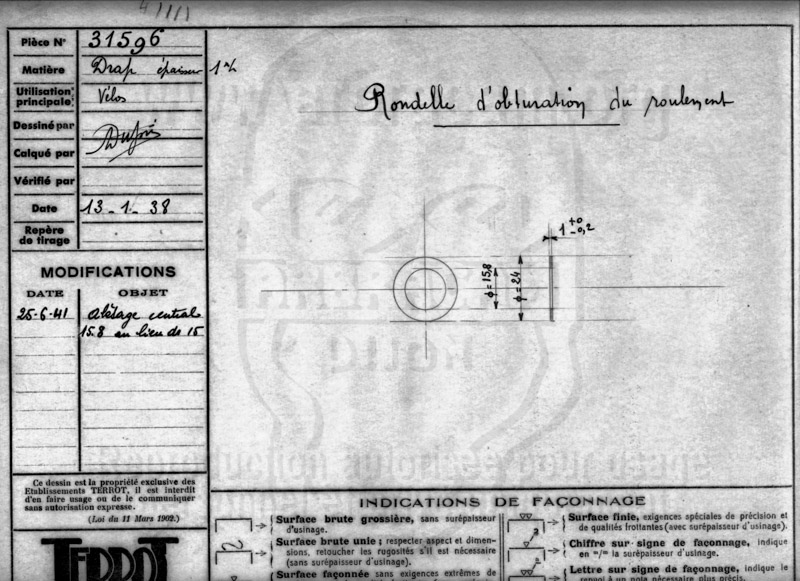 Pièce Nº 31596
Matière Drap épaisseur 1
Utilisation principale: Vélos
Dessiné par
Calqué par
Vérifié par
Date 13-1-38
Repère de tirage
MODIFICATIONS
DATE OBJET
25-6-41 Alésage central
15.8 au lieu de 15
Ce dessin est la propriété exclusive des
Etablissements TERROT, il est interdit
d'en faire usage ou de le communiquer
sans autorisation expresse.
(Loi du 11 Mars 1902.)
TERROT
Rondelle d'obturation du roulement
1 +0 -0,2
ϕ=15,8
ϕ=24
Reproduction autorisée pour usage
INDICATIONS DE FAÇONNAGE
Surface brute grossière, sans surépaisseur
d'usinage.
Surface brute unie ; respecter aspect et dimen-
sions, retoucher les rugosités s'il est nécessaire
(sans surépaisseur d'usinage).
Surface façonnée sans exigences extrêmes de
Surface finie, exigences spéciales de précision et
de qualités frottantes (avec surépaisseur d'usinage).
Chiffre sur signe de façonnage, indique
en m/m la surépaisseur d'usinage.
Lettre sur signe de façonnage, indique le
renvoi à un nota nécessaire plus précis.